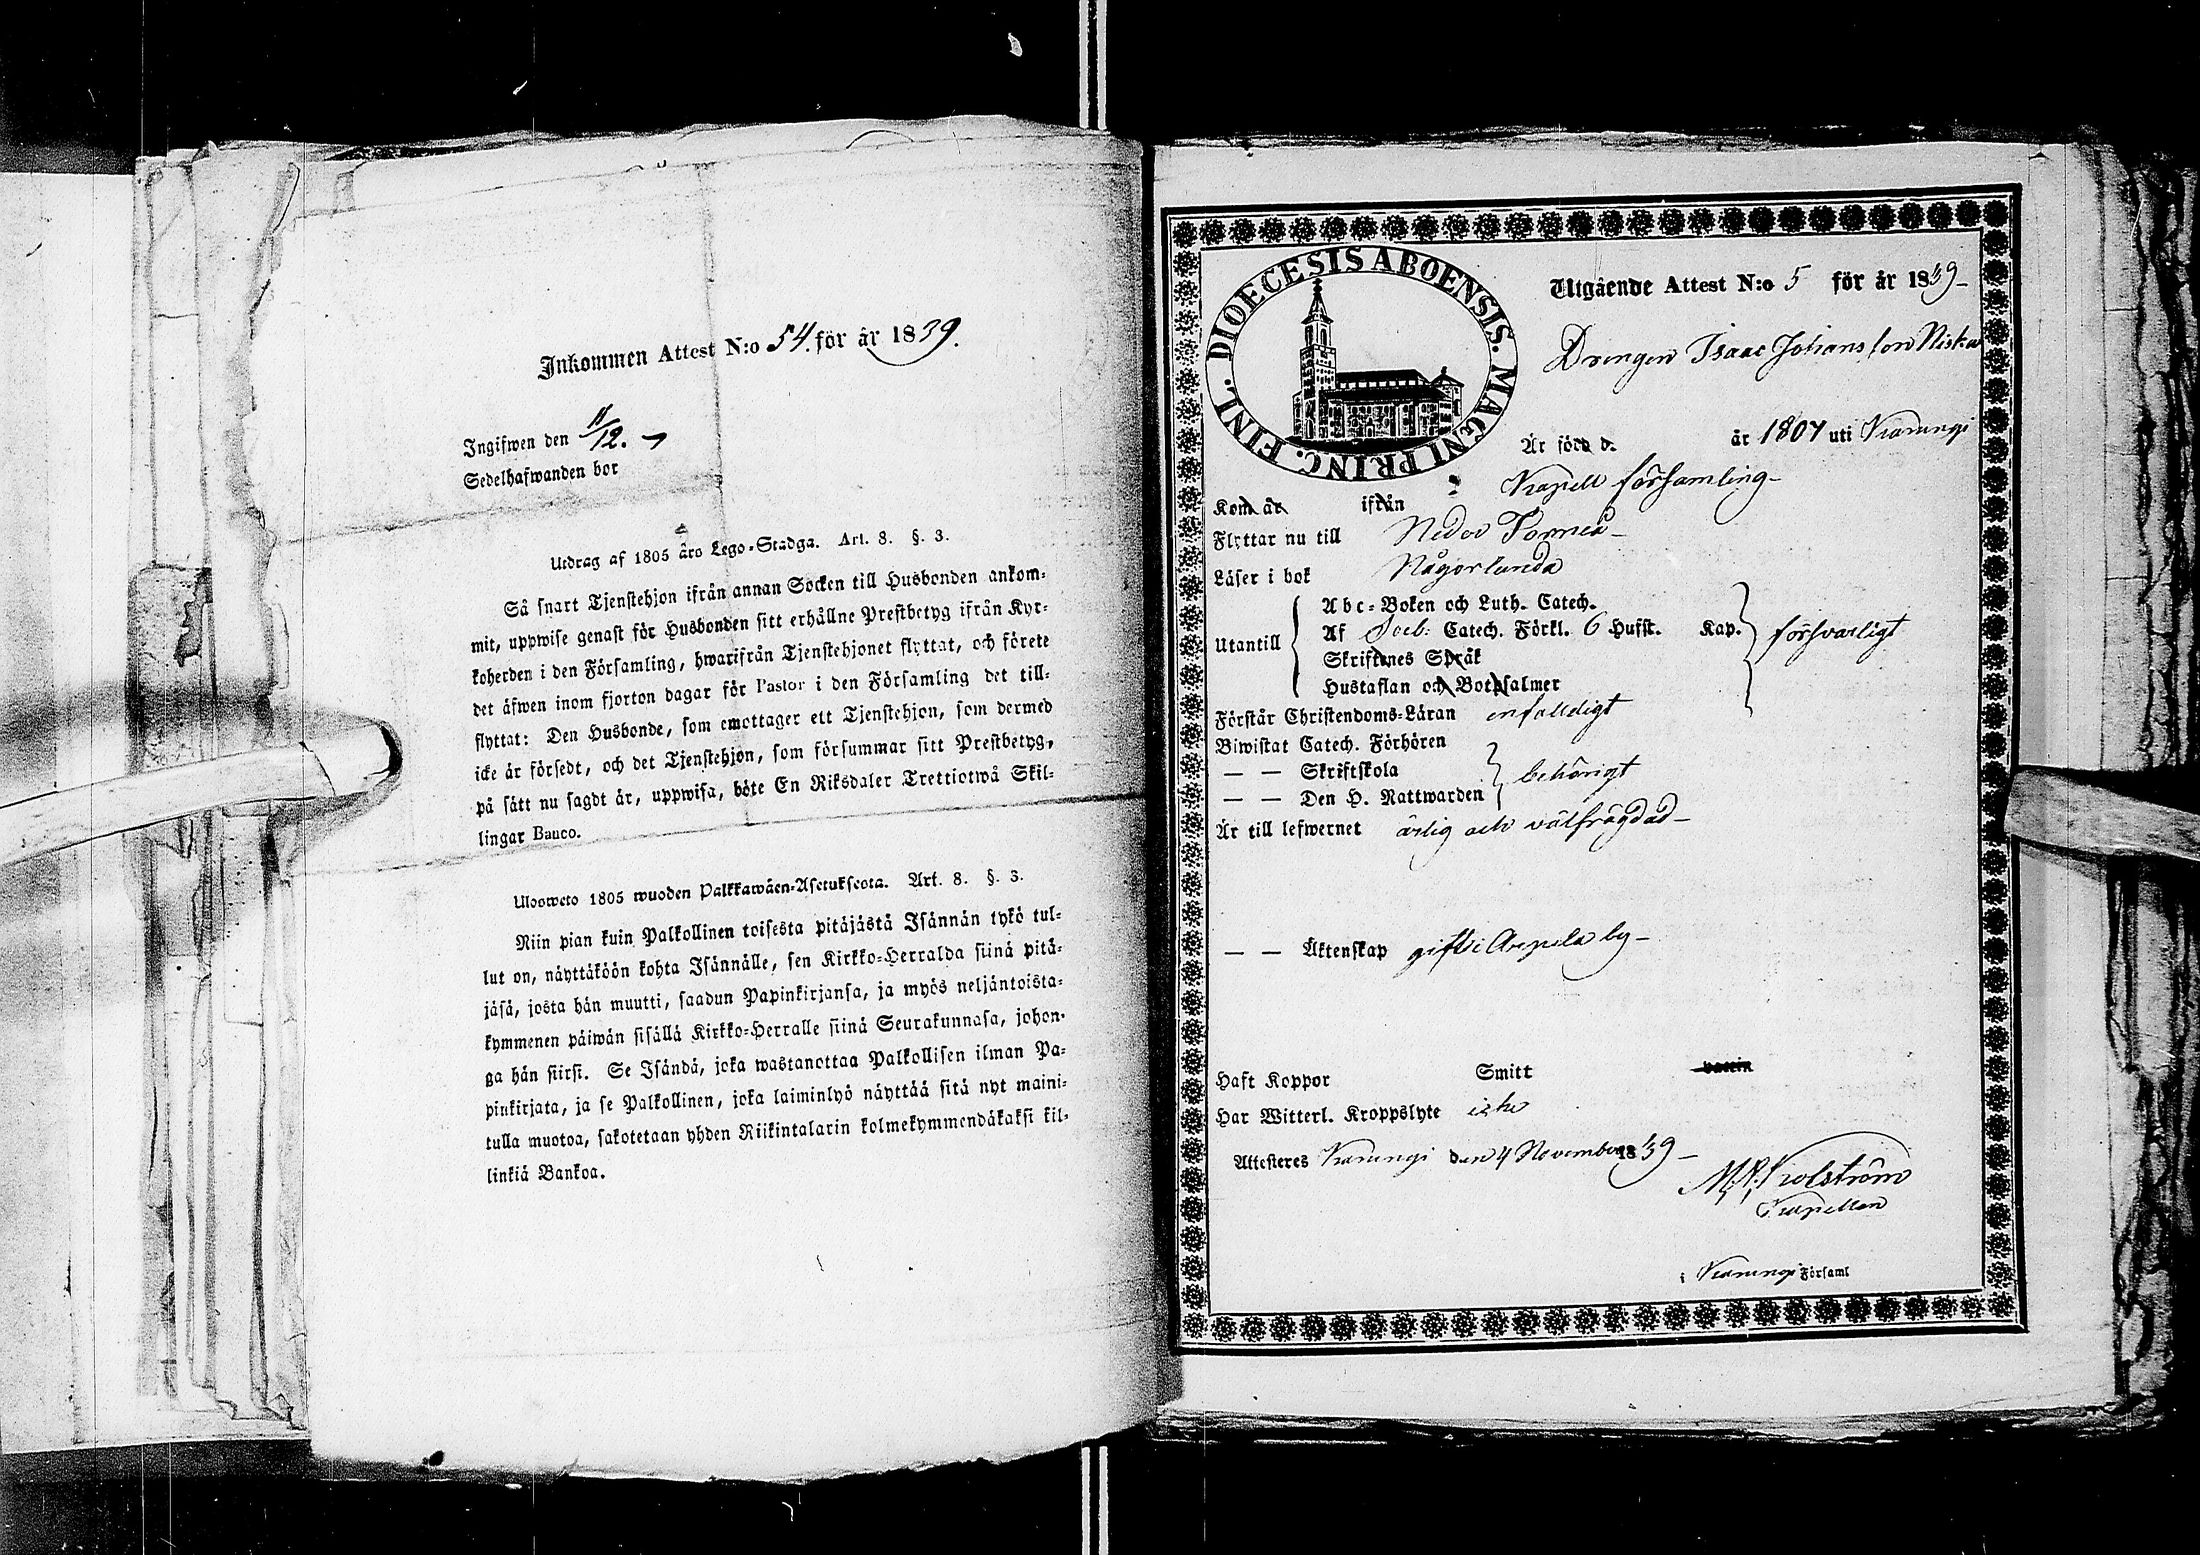 Inkommen Attest N:o 54. för år 1839.
Ingifwen den 11/12.
Sedelhafwanden bor
Utdrag af 1805 års Lego-Stadga. Art. 8. §. 3.
Så snart Tjenstehjon ifrån annan Socken till Husbonden ankom-
mit, uppwise genast för Husbonden sitt erhållne Prestbetyg ifrån Kyr-
koherden i den Församling, hwarifrån Tjenstehjonet flyttat, och förete
det äfwen inom fjorton dagar för Pastor i den Församling det till-
flyttat: Den Husbonde, som emottager ett Tjenstehjon, som dermed
icke är försedt, och det Tjenstehjon, som försummar sitt Prestbetyg,
på sätt nu sagdt är, uppwisa, böte En Riksdaler Trettiotwå Skil-
lingar Banco.
Ulosweto 1805 wuoden Palkkawäen-Asetuksesta. Art. 8. §. 3.
Niin pian kuin Palkollinen toisesta pitäjästä Isännän tykö tul-
lut on, näyttäköön kohta Isännälle, sen Kirkko-Herralda siinä pitä-
jäsä, josta hän muutti, saadun Papinkirjansa, ja myös neljäntoista-
kymmenen päiwän sisällä Kirkko-Herralle siinä Seurakunnasa, johon-
ga hän siirsi. Se Isändä, joka wastanottaa Palkollisen ilman Pa-
pinkirjata, ja se Palkollinen, joka laiminlyö näyttää sitä nyt maini-
tulla muotoa, sakotetaan yhden Riikintalarin kolmekymmendäkaksi kil-
linkiä Bankoa.
DIOECESIS ABOENSIS. MAGNI PRINC. FINL.
Utgående Attest N:o 5 för år 1839
Drengen Isaac Johansson Niska
Är född d. år 1807 uti Karungi
Kapell församling
Kom år ifrån
Flyttar nu till Neder Torneå
Läser i bok Någorlunda
Abc-Boken och Luth. Catech.
Utantill Af Sveb: Catech. Förkl. 6 Hufst. Kap. försvarligt
Skriftenes Språk
Hustaflan och Botpsalmer
Förstår Christendoms-Läran enfalldigt
Biwistat Catech. Förhören
— — Skriftskola behörigt
— — Den H. Nattwarden
Är till lefwernet ärlig och välfrägdad
— — Äktenskap gift i Arpela by
Haft Koppor Smitt vaccin
Har Witterl. Kroppslyte icke
Attesteres Karungi den 4 November 1839
Kapellan
i Karungi Församl